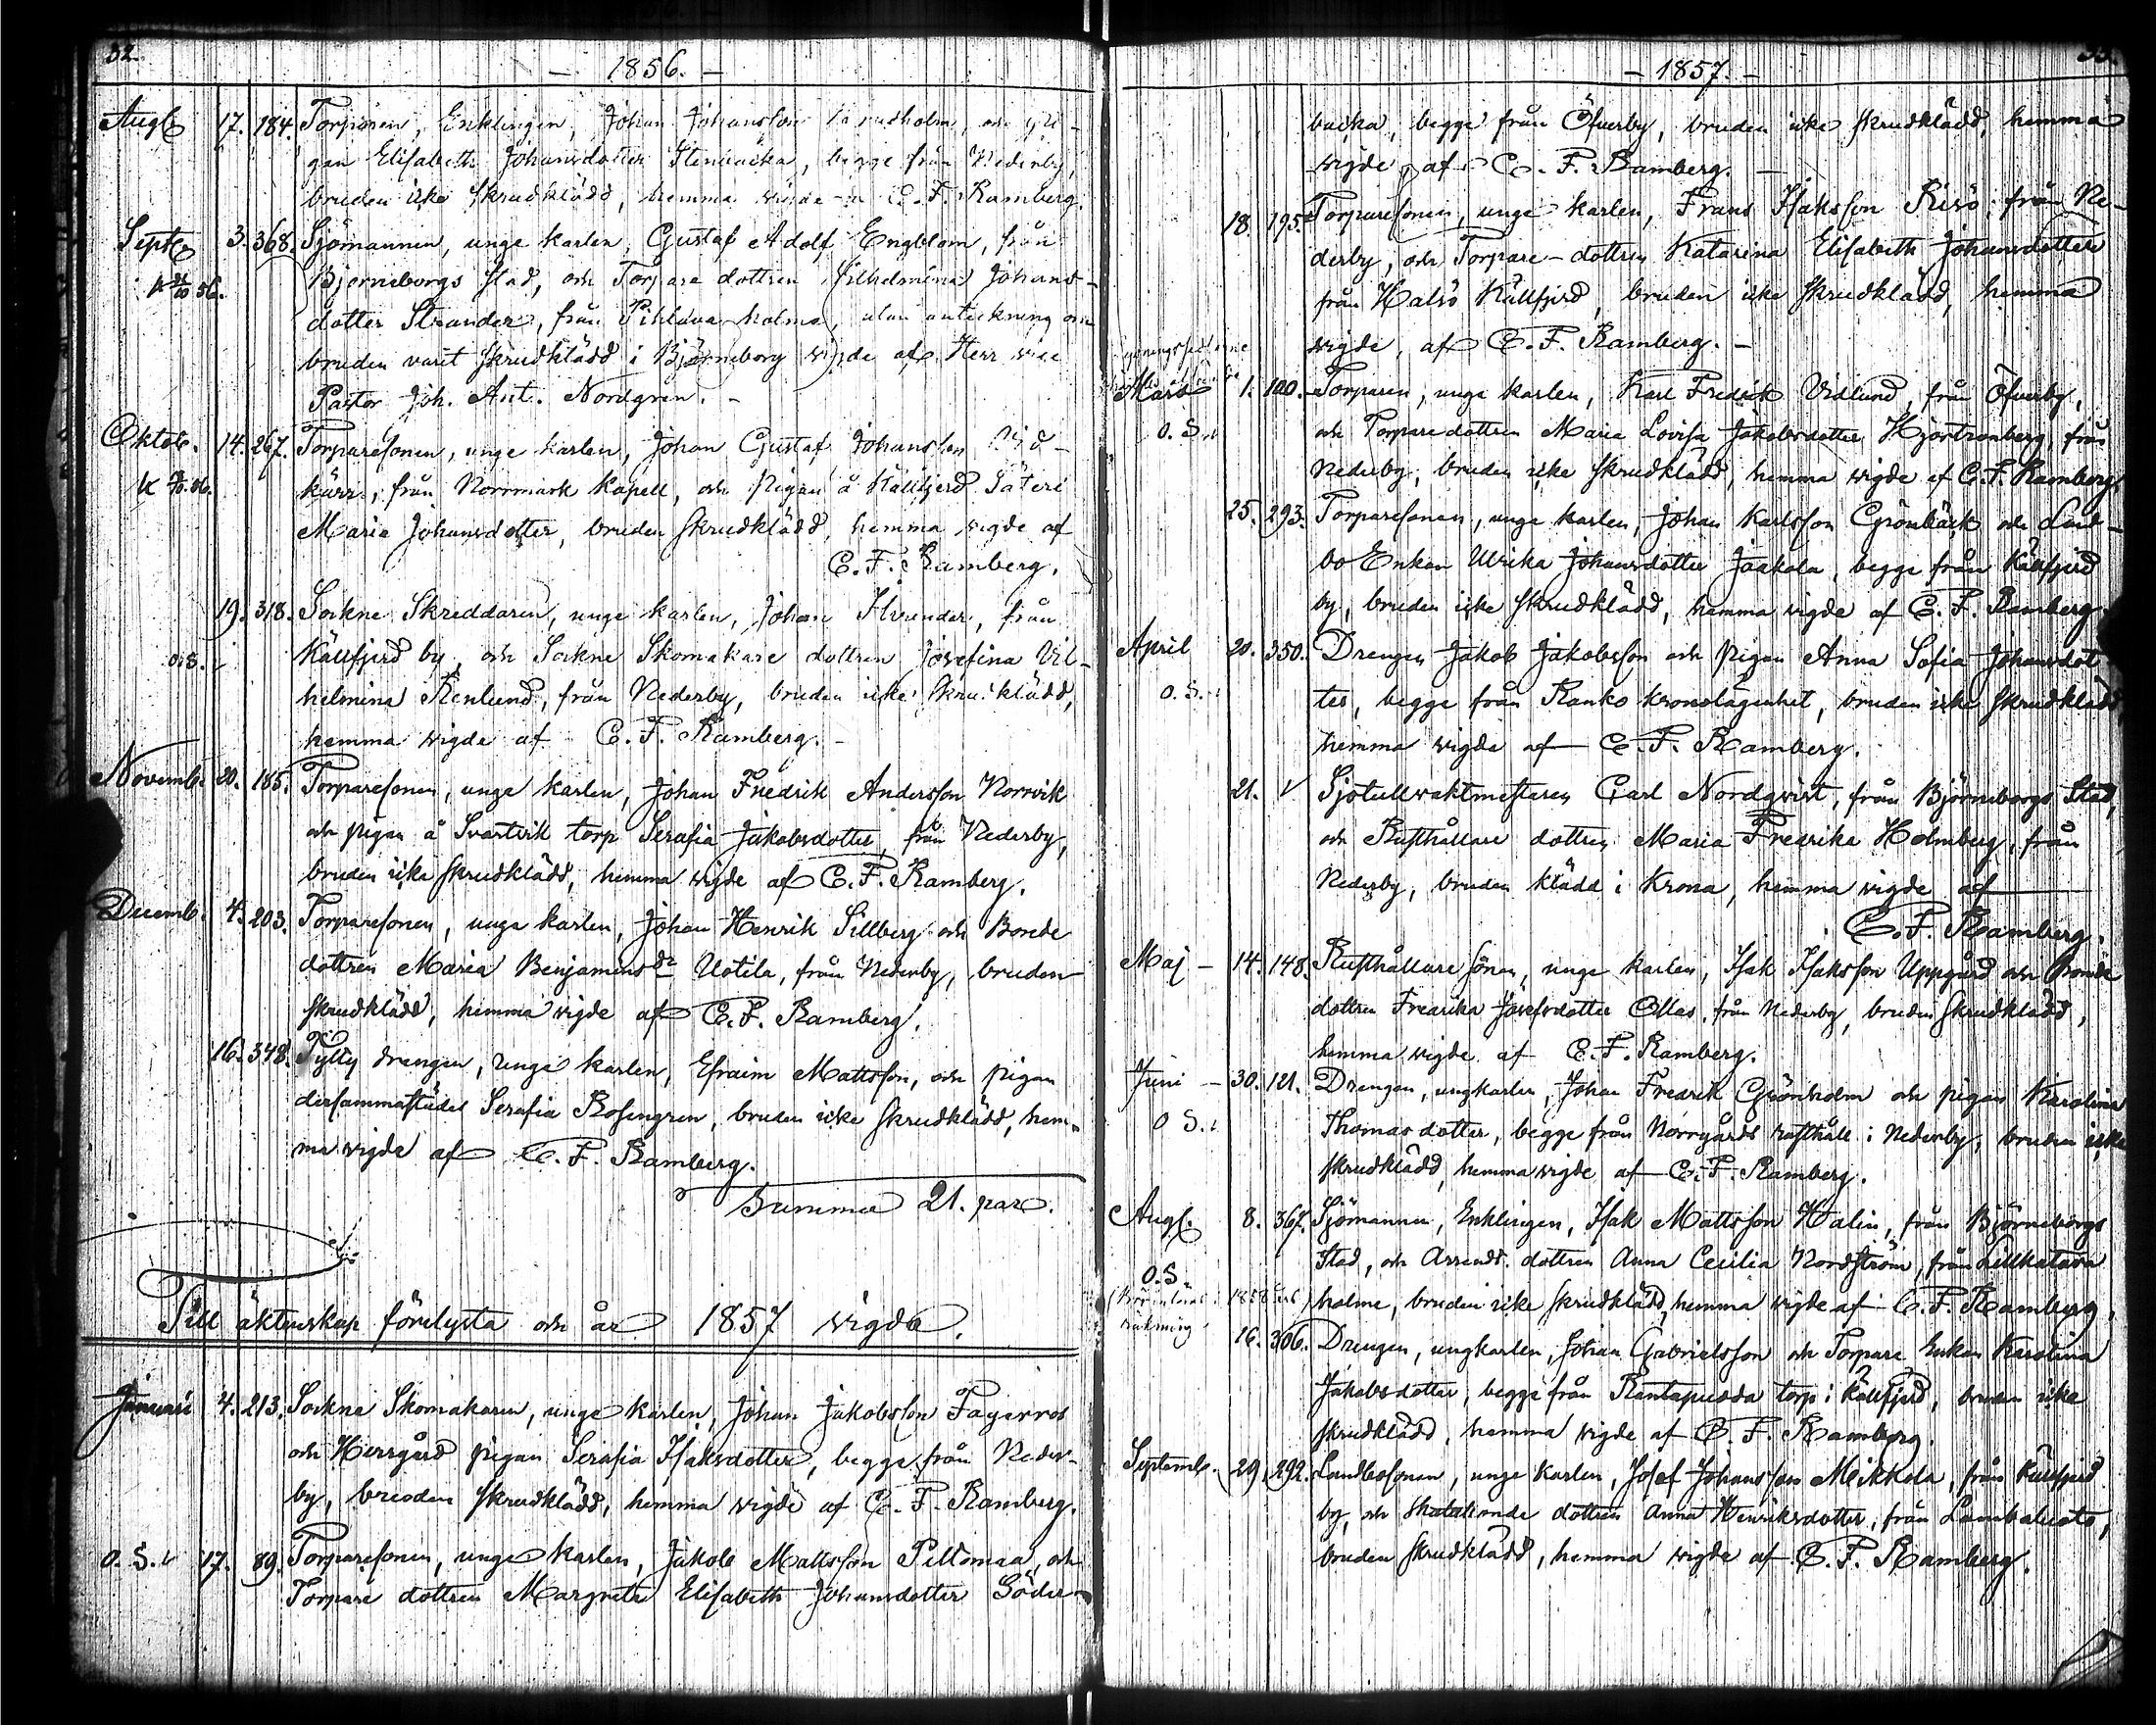 32.
— 1856. —
Aug. 17. 184. Torparen, Enklingen, Johan Johansson och pi-
gan Elisabeth Johansdotter Stenbacka, begge från Nederby,
bruden icke skrudklädd, hemma vigde af C. F. Ramberg.
Septr 3. 368. Sjömannen, unge karlen, Gustaf Adolf Engblom, från
Björneborgs stad, och Torpare dottren Vilhelmina Johans-
dotter Strander, från Pihlava holme, utan anteckning om
bruden varit skrudklädd i Björneborg vigde af Herr vice
Pastor Joh. Ant. Nordgren. –
Oktob. 14. 267. Torparesonen, unge karlen, Johan Gustaf Johansson
kärr, från Norrmark Kapell, och Pigan å Källfjerd Säteri
Maria Johansdotter, bruden skrudklädd, hemma vigde af
C. F. Ramberg.
19. 318. Sockne Skreddaren, unge karlen, Johan från
o. S. Källfjerd by, och Sockne Skomakare dottren Josefina Vil-
helmina Renlund, från Nederby, bruden icke skrudklädd,
hemma vigde af C. F. Ramberg. –
Novemb. 20. 185. Torparesonen, unge karlen, Johan Fredrik Andersson Norrvik
och pigan å Svartvik torp Serafia Jakobsdotter, från Nederby,
bruden icke skrudklädd, hemma vigde af C. F. Ramberg.
Decemb. 4. 203. Torparesonen, unge karlen, Johan Henrik Sillberg och Bonde
dottren Maria Benjamins dr Uotila, från Nederby, bruden
skrudklädd, hemma vigde af C. F. Ramberg.
16. 348. Tytty drengen, unge karlen, Efraim Mattsson, och pigan
dersammastädes Serafia Rosengren, bruden icke skrudklädd, hem-
ma vigde af C. F. Ramberg.
Summa 21. par.
Till äktenskap förelysta och år 1857 vigda.
Januari 4. 213. Sockne Skomakaren, unge karlen, Johan Jakobsson Fagerros
och Herrgård pigan Serafia Isaksdotter, begge från Neder-
by, bruden skrudklädd, hemma vigde af C. F. Ramberg.
O. S. 17. 89. Torparesonen, unge karlen, Jakob Mattsson Peltomaa, och
Torpare dottren Margreta Elisabeth Johansdotter Söder-
33.
— 1857. —
backa, begge från Öfverby, bruden icke skrudklädd, hemma
vigde af C. F. Ramberg. –
18. 195. Torparesonen, unge karlen, Frans Isaksson Risö, från Ne-
derby, och Torpare-dottren Katarina Elisabeth Johansdotter
från Halsö Källfjerd, bruden icke skrudklädd, hemma
vigde, af C. F. Ramberg. –
Mars 1. 100. Torparen, unge karlen, Karl Fredrik Vidlund, från Öfverby,
O. S. och Torparedottren Maria Lovisa Jakobsdotter Hjortronberg, från
Nederby, bruden icke skrudklädd, hemma vigde af C. F. Ramberg.
25. 293. Torparesonen, unge karlen, Johan Karlsson Grönbäck och Land-
bo Enkan Ulrika Johansdotter Jaakola, begge från Källfjerd
by, bruden icke skrudklädd, hemma vigde af C. F. Ramberg.
April 20. 350. Drengen Jakob Jakobsson och pigan Anna Sofia Johansdot
O. S. ter, begge från Ranko kronolägenhet, bruden icke skrudklädd,
hemma vigde af C. F. Ramberg.
21. Sjötullvaktmestaren Carl Nordqvist, från Björneborgs Stad,
och Rusthållare dottren Maria Fredrika Holmberg, från
Nederby, bruden klädd i Krona, hemma vigde af
C. F. Ramberg.
Maj – 14. 148. Rusthållare sonen, unge karlen, Isak Isaksson Uppgård och Bonde
dottren Fredrika Josefsdotter Ollas, från Nederby, bruden skrudklädd,
hemma vigde af C. F. Ramberg.
Juni – 30. 121. Drengen, ungkarlen, Johan Fredrik Grönholm och pigan Karolina
O S. Thomasdotter, begge från Norrgårds rusthåll i Nederby, bruden icke
skrudklädd, hemma vigde af C. F. Ramberg.
Aug. 8. 367. Sjömannen, Enklingen, Isak Mattsson Walin, från Björneborgs
Stad, och Arrend. dottren Anna Cecilia Nordström, från Lillkatava
O. S. holme, bruden icke skrudklädd, hemma vigde af C. F. Ramberg,
16. 306. Drengen, ungkarlen, Johan Gabrielsson och Torpare Enkan Karolina
Jakobsdotter, begge från Rantapusda torp i Källfjerd, bruden icke
skrudklädd, hemma vigde af C. F. Ramberg.
Septemb. 29. 292. Landbosonen, unge karlen, Josef Johansson Meikkola, från Källfjerd
by, och skattebonde dottren Anna Henriksdotter, från Lambaluoto,
bruden skrudklädd, hemma vigde af C. F. Ramberg.